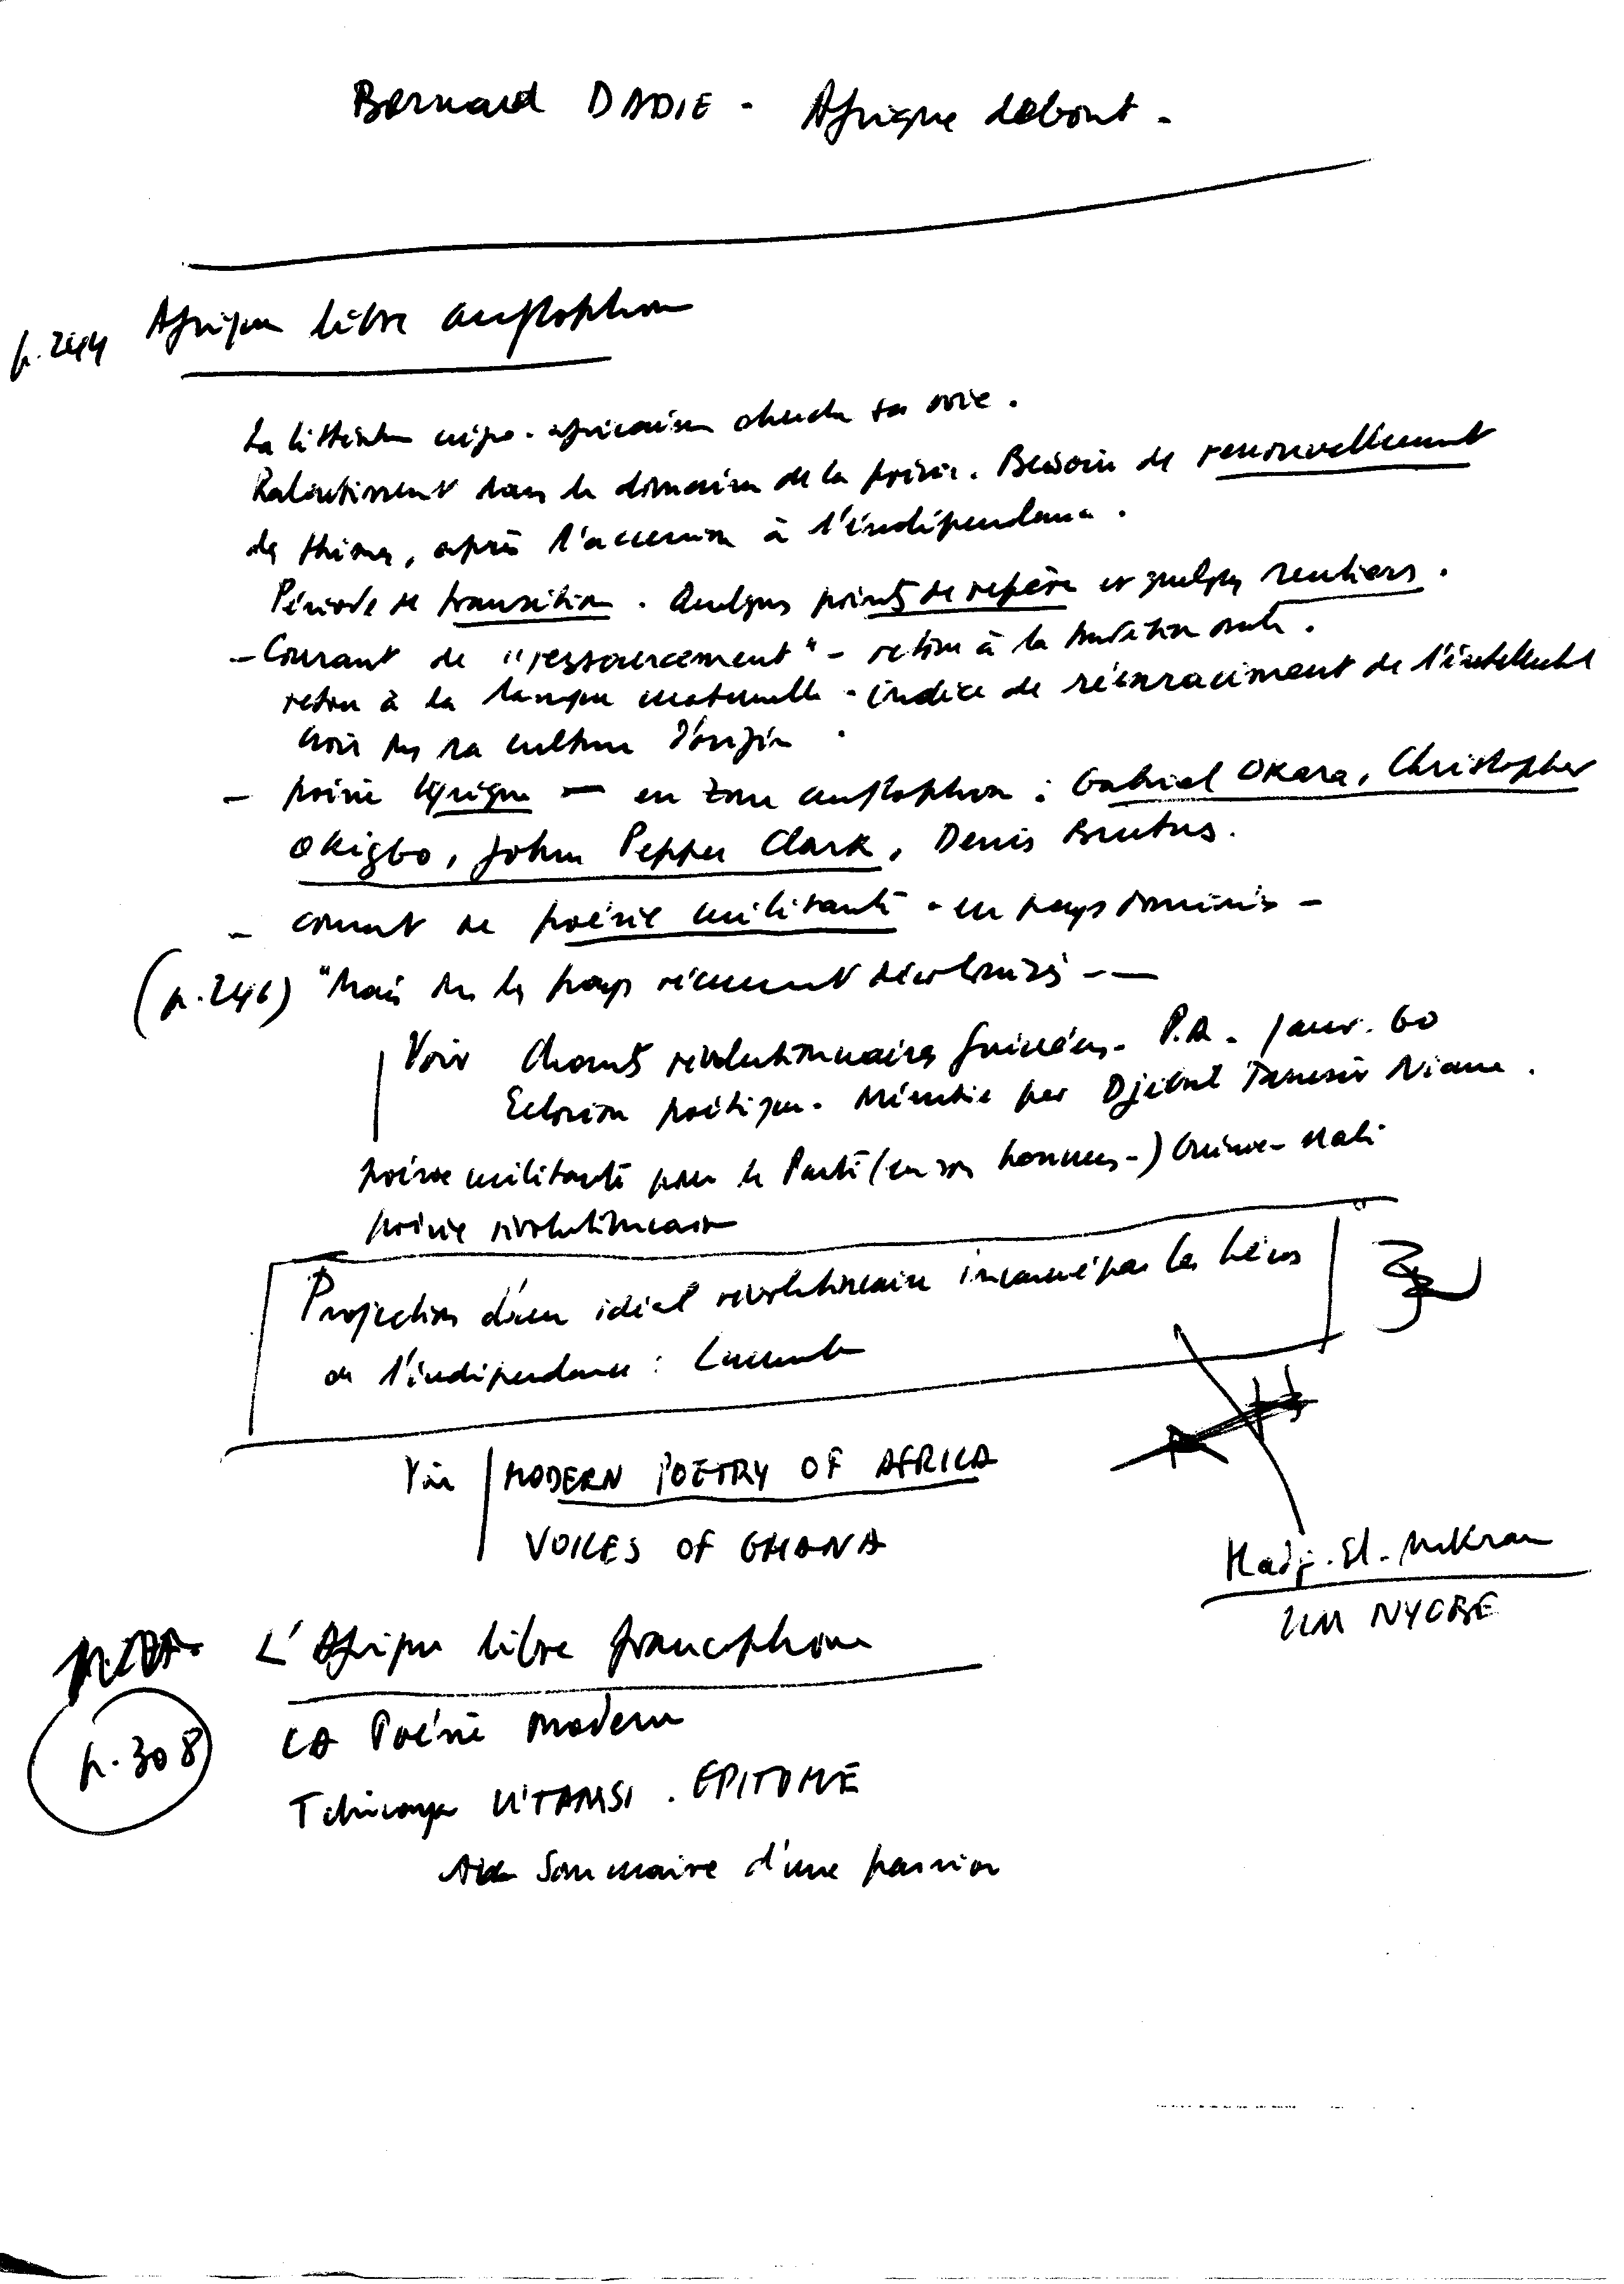 Bernard DADIE - Afrique debout -
p.244 Afrique libre anglophone
La littérature négro-africaine cherche sa voie.
Ralentissement dans le domaine de la poésie. Besoin de renouvellement
des thèmes, après l'accession à l'indépendance.
Période de transition. Quelques points de repère et quelques sentiers.
- Courant de "ressourcement" - retour à la tradition orale.
retour à la langue maternelle - indice de réenracinement de l'intellectuel
noir ds sa culture d'origine.
- poésie lyrique — en zone anglophone : Gabriel Okara, Christopher
Okigbo, John Pepper Clark, Denis Brutus.
- courant de poésie militante - en pays dominés -
(p.246) "Mais ds les pays récemment décolonisés - —
Voir Chants révolutionnaires guinéens - P.A. - janv. 60
Eclosion poétique. Mentie par Djibril Tamsir Niane.
poésie militante pour le Parti (en son honneur -) Guinée - Mali
poésie révolutionnaire
Projection d'un idéal révolutionnaire incarné par les héros
de l'indépendance : Lumumba
Voir MODERN POETRY OF AFRICA
VOICES OF GHANA
Hadj-El-Mokrani
UM NYOBE
L'Afrique libre francophone
p.308 LA Poésie moderne
Tchicaya U'TAMSI . EPITOME
Sommaire d'une passion